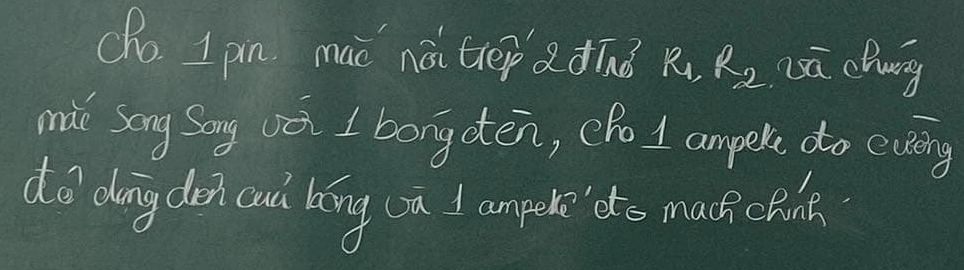 Cho 1 pin. mắc nối tiếp 2 đ trở R1, R2 và chúng
mắc song song với 1 bóng đèn, cho 1 ampekế đo cường
độ dòng điện của bóng và 1 ampekế đo mạch chính